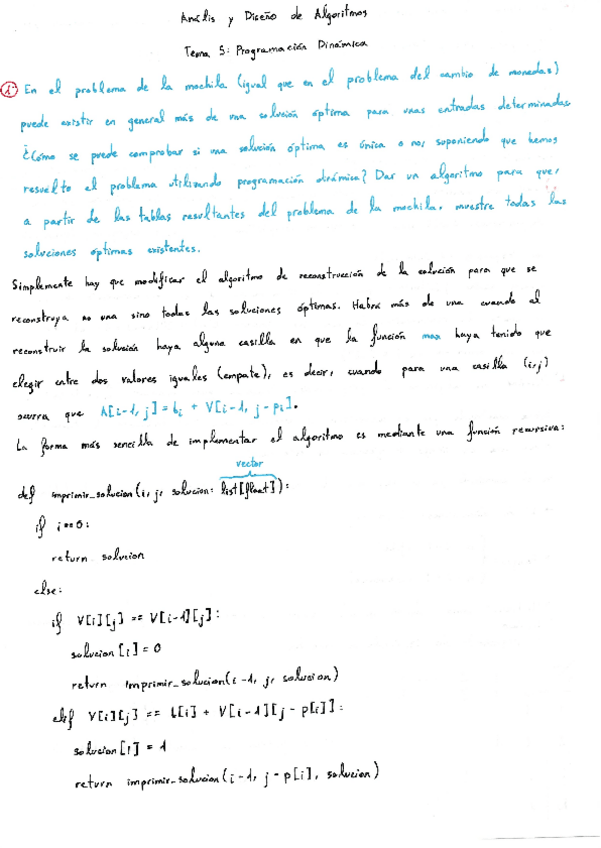 Anális y Diseño de Algoritmos
Tema 5: Programación Dinámica
1. En el problema de la mochila (igual que en el problema del cambio de monedas)
puede existir en general más de una solución óptima para unas entradas determinadas.
¿Cómo se puede comprobar si una solución óptima es única o no, suponiendo que hemos
resuelto el problema utilizando programación dinámica? Dar un algoritmo para que,
a partir de las tablas resultantes del problema de la mochila, muestre todas las
soluciones óptimas existentes.
Simplemente hay que modificar el algoritmo de reconstrucción de la solución para que se
reconstruya no una sino todas las soluciones óptimas. Habrá más de una cuando al
reconstruir la solución haya alguna casilla en que la función max haya tenido que
elegir entre dos valores iguales (empate), es decir, cuando para una casilla (i,j)
ocurra que V[i-1, j] = bi + V[i-1, j-pi].
La forma más sencilla de implementar el algoritmo es mediante una función recursiva:
vector
def imprimir_solucion(i, j, solucion: list[float]):
if i==0:
return solucion
else:
if V[i][j] == V[i-1][j]:
solucion[i] = 0
return imprimir_solucion(i-1, j, solucion)
elif V[i][j] == b[i] + V[i-1][j - p[i]]:
solucion[i] = 1
return imprimir_solucion(i-1, j-p[i], solucion)